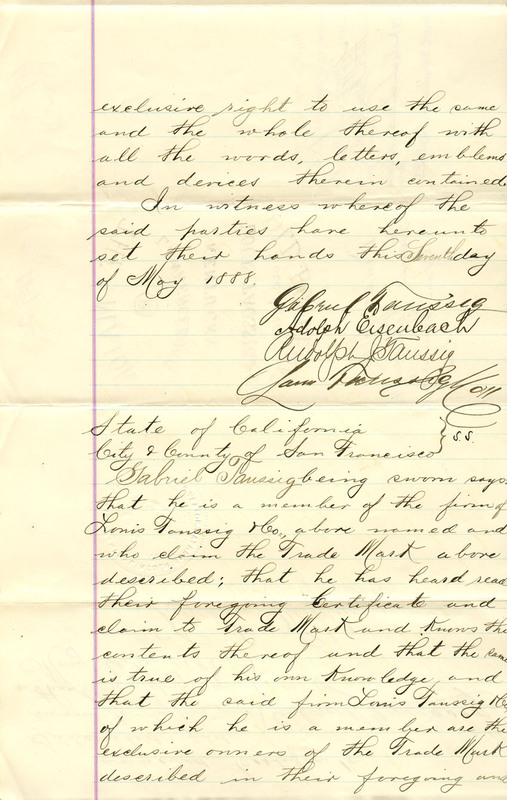 exclusive right to use the same
and the whole thereof with
all the words, letters, emblems
and devices therein contained.
In witness whereof the
said parties have hereunto
set their hands this Seventh day
of May 1888.
Gabriel Taussig
Adolph Eisenbach
Rudolph J Taussig
Louis Taussig & Co
State of California
City & County of San Francisco } s.s.
Gabriel Taussig being sworn says
that he is a member of the firm of
Louis Taussig & Co., above named and
who claim the Trade Mark above
described; that he has heard read
their foregoing Certificate and
claim to Trade Mark and Knows the
contents thereof and that the same
is true of his own Knowledge, and
that the said firm Louis Taussig & Co
of which he is a member are the
exclusive owners of the Trade Mark
described in their foregoing and